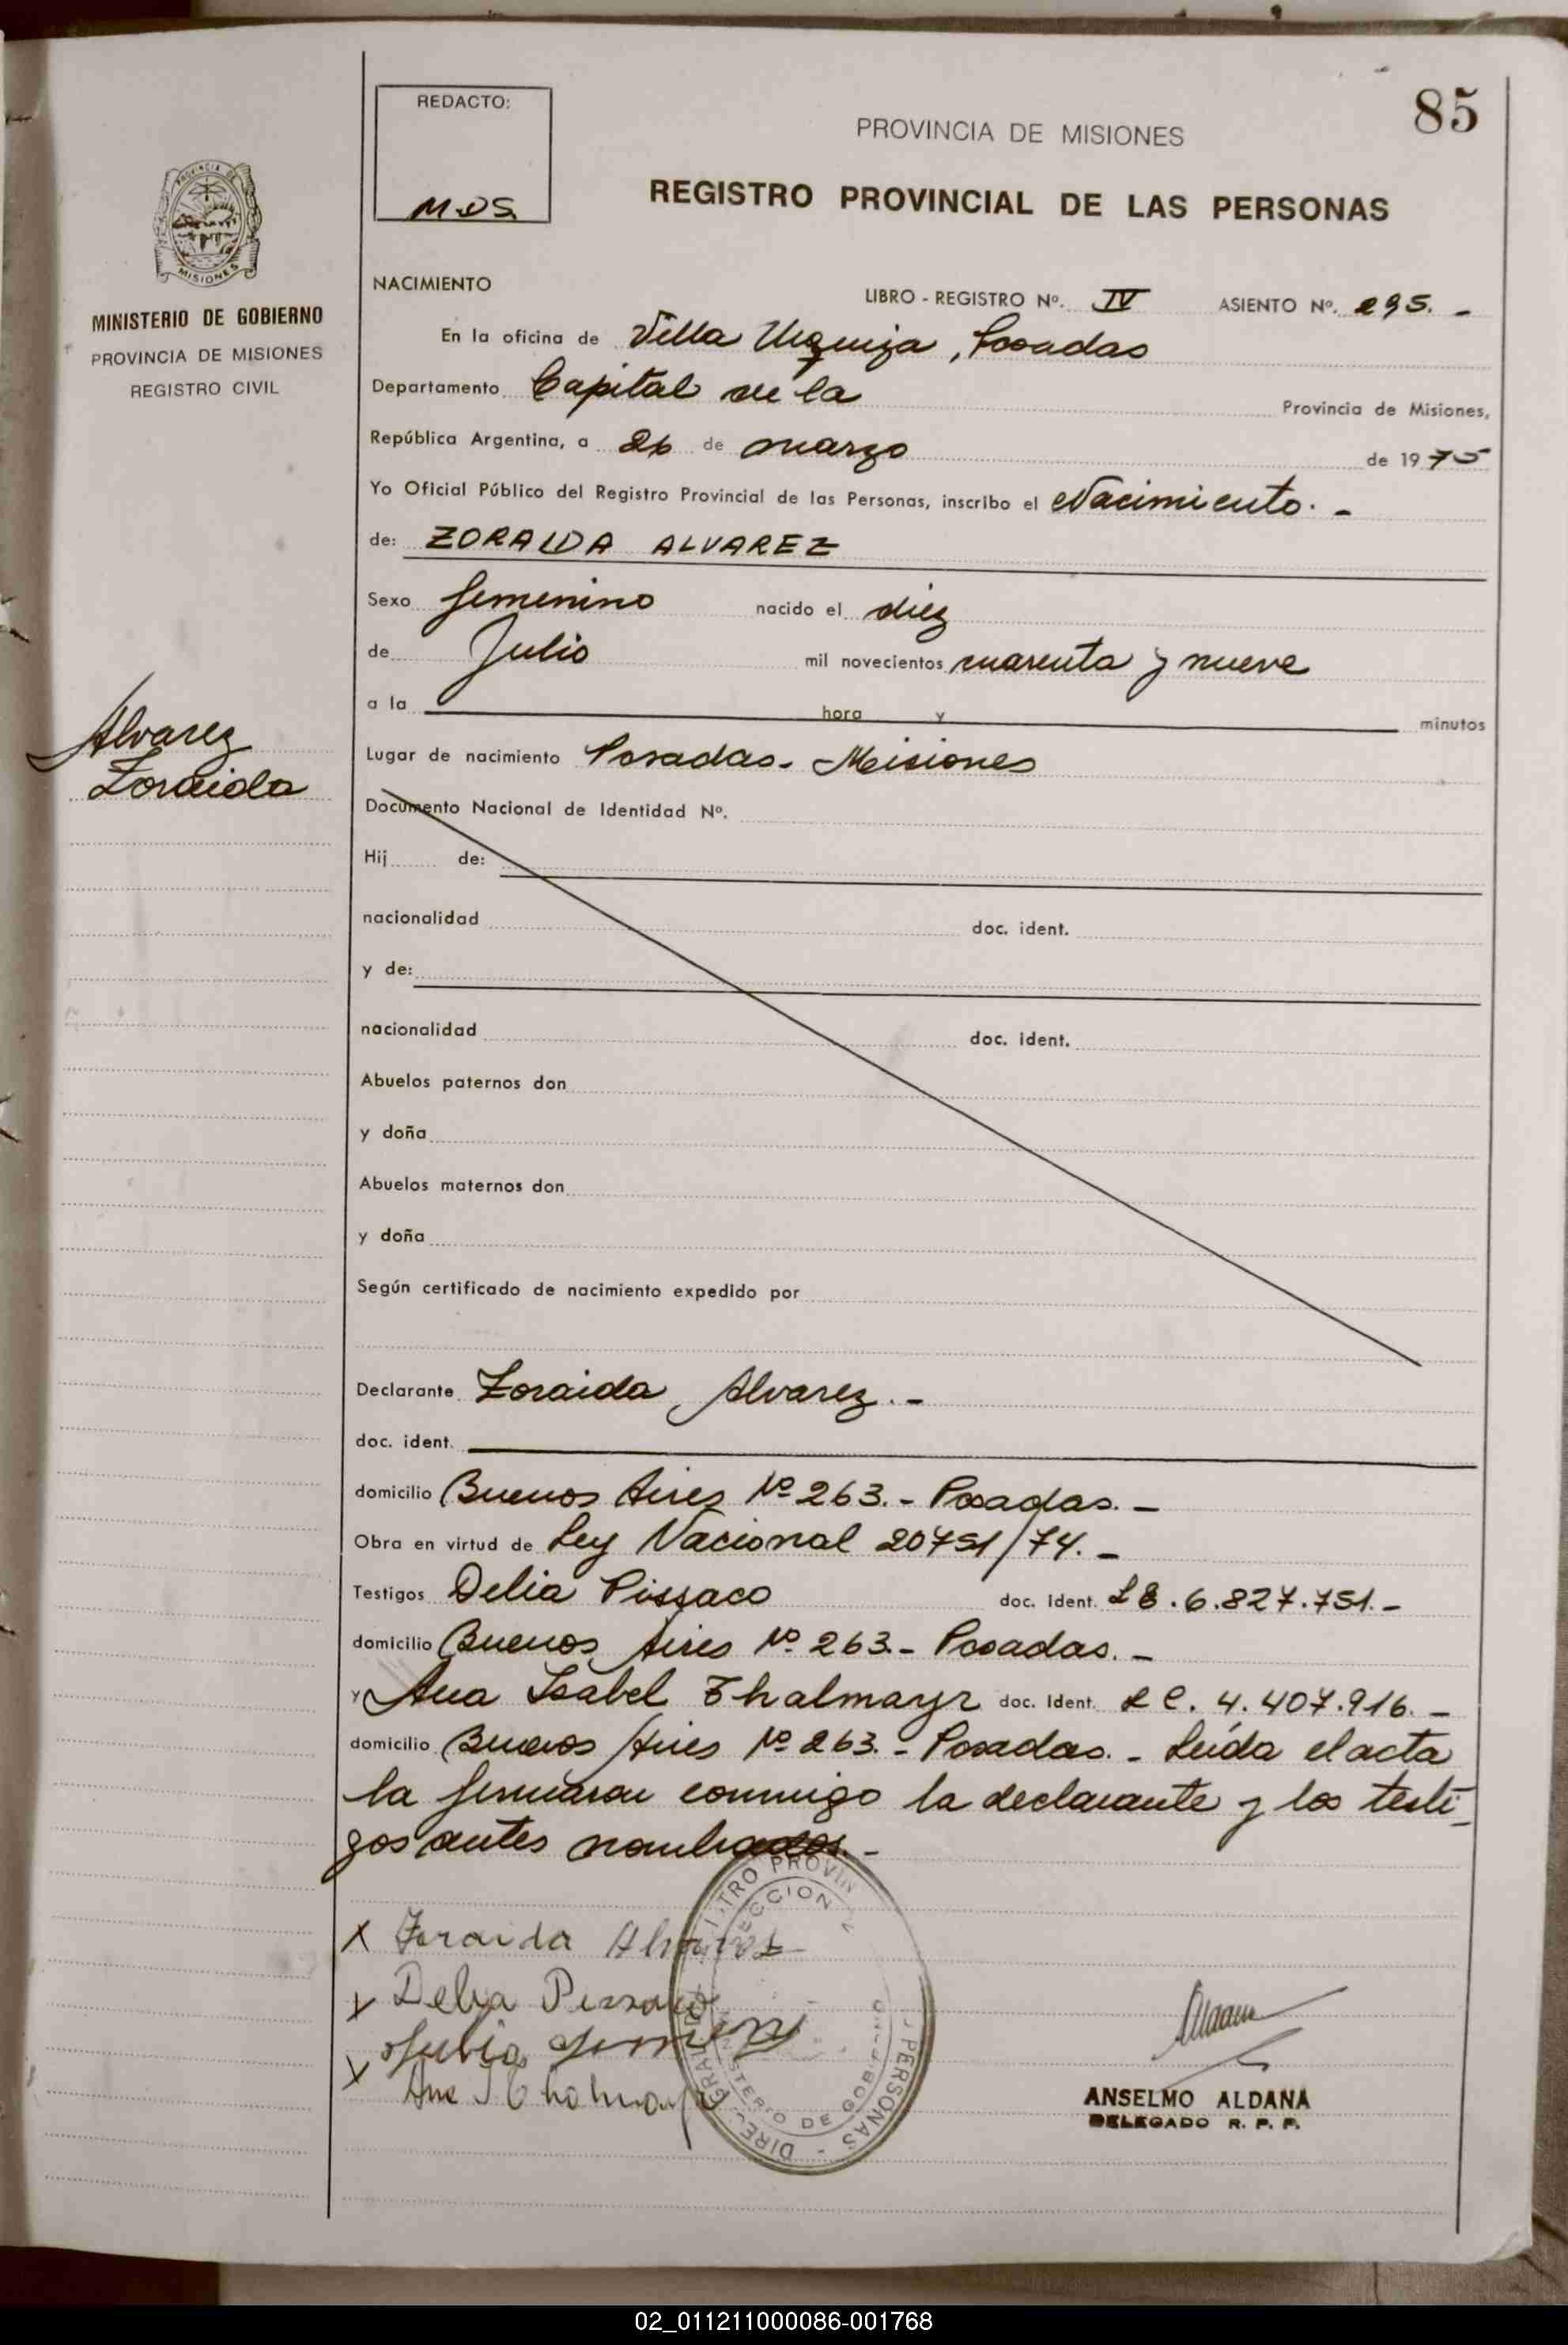 85
REDACTO:
M.D.S.
PROVINCIA DE MISIONES
REGISTRO PROVINCIAL DE LAS PERSONAS
PROVINCIA DE
MISIONES
MINISTERIO DE GOBIERNO
PROVINCIA DE MISIONES
REGISTRO CIVIL
NACIMIENTO
LIBRO - REGISTRO Nº. IV ASIENTO Nº. 295. -
En la oficina de Villa Urquiza, Posadas
Departamento Capital de la Provincia de Misiones,
República Argentina, a 26 de marzo de 1975
Yo Oficial Público del Registro Provincial de las Personas, inscribo el Nacimiento. -
de: ZORAIDA ALVAREZ
Sexo femenino nacido el diez
de Julio mil novecientos cuarenta y nueve
a la hora y minutos
Alvarez
Zoraida
Lugar de nacimiento Posadas - Misiones
Documento Nacional de Identidad Nº.
Hij de:
nacionalidad doc. ident.
y de:
nacionalidad doc. ident.
Abuelos paternos don
y doña
Abuelos maternos don
y doña
Según certificado de nacimiento expedido por
Declarante Zoraida Alvarez. -
doc. ident.
domicilio Buenos Aires Nº 263. - Posadas. -
Obra en virtud de Ley Nacional 20751/74. -
Testigos Delia Pissaco doc. ident. 6.827.751. -
domicilio Buenos Aires Nº 263. - Posadas. -
y Ana Isabel Thalmayr doc. Ident. LC. 4.407.916. -
domicilio Buenos Aires Nº 263. - Posadas. - Leída el acta
la firmaron conmigo la declarante y los testi-
gos antes nombrados. -
X Zoraida Alvarez
X Delia Pissaco
X Ana I Thalmayr
MINISTERIO DE GOBIERNO
PERSONAS - DIRE
ANSELMO ALDANA
DELEGADO R. P. P.
02_011211000086-001768